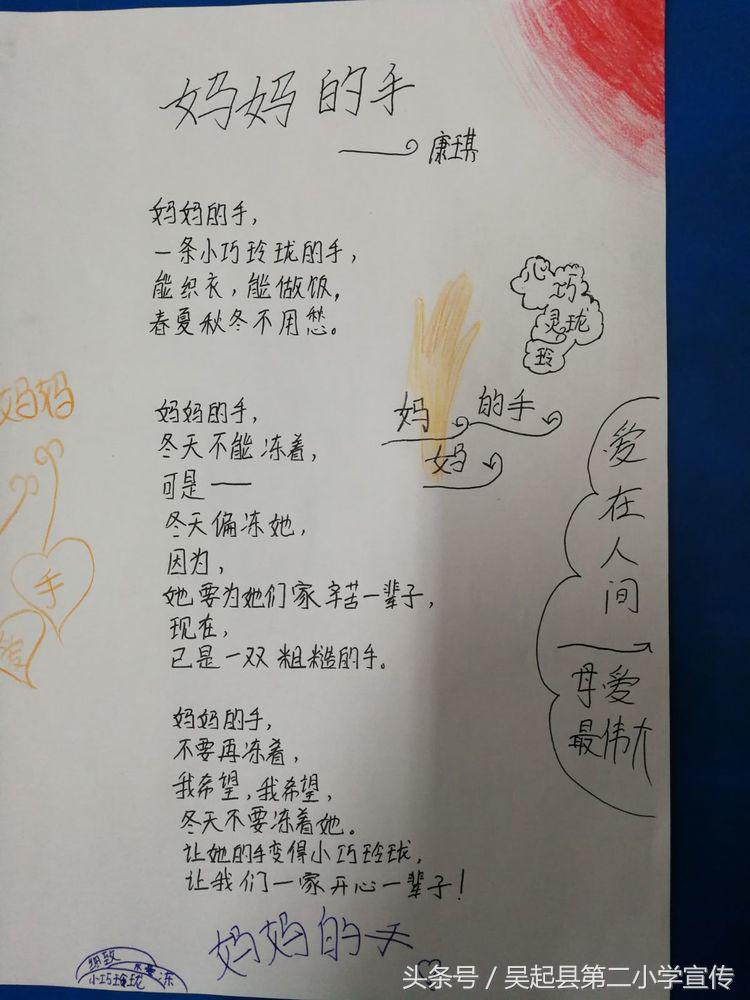 妈妈的手
——康琪
妈妈的手，
一条小巧玲珑的手，
能织衣，能做饭，
春夏秋冬不用愁。
巧
灵珑
玲
妈妈的手
妈妈的手，
冬天不能冻着，
可是——
冬天偏冻她，
因为，
她要为她们家辛苦一辈子，
现在，
已是一双粗糙的手。
妈妈的手，
不要再冻着，
我希望，我希望，
冬天不要冻着她。
让她的手变得小巧玲珑，
让我们一家开心一辈子！
爱在人间
母爱
最伟大
妈妈
手
妈妈的手
小巧玲珑
冻
头条号／吴起县第二小学宣传